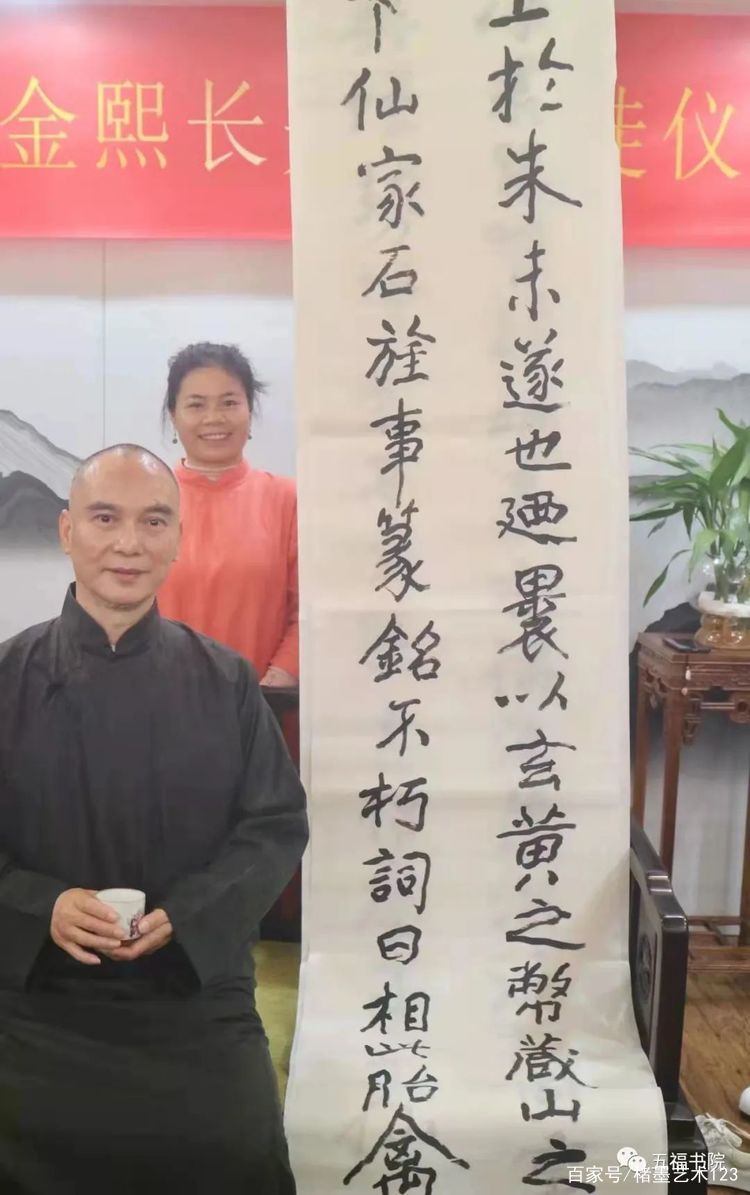 金熙长 仪
於朱未遂也廼裹以玄黃之幣藏山之
下仙家石旌事篆銘不朽詞曰相此胎禽
五福书院
百家号/楮墨艺术123